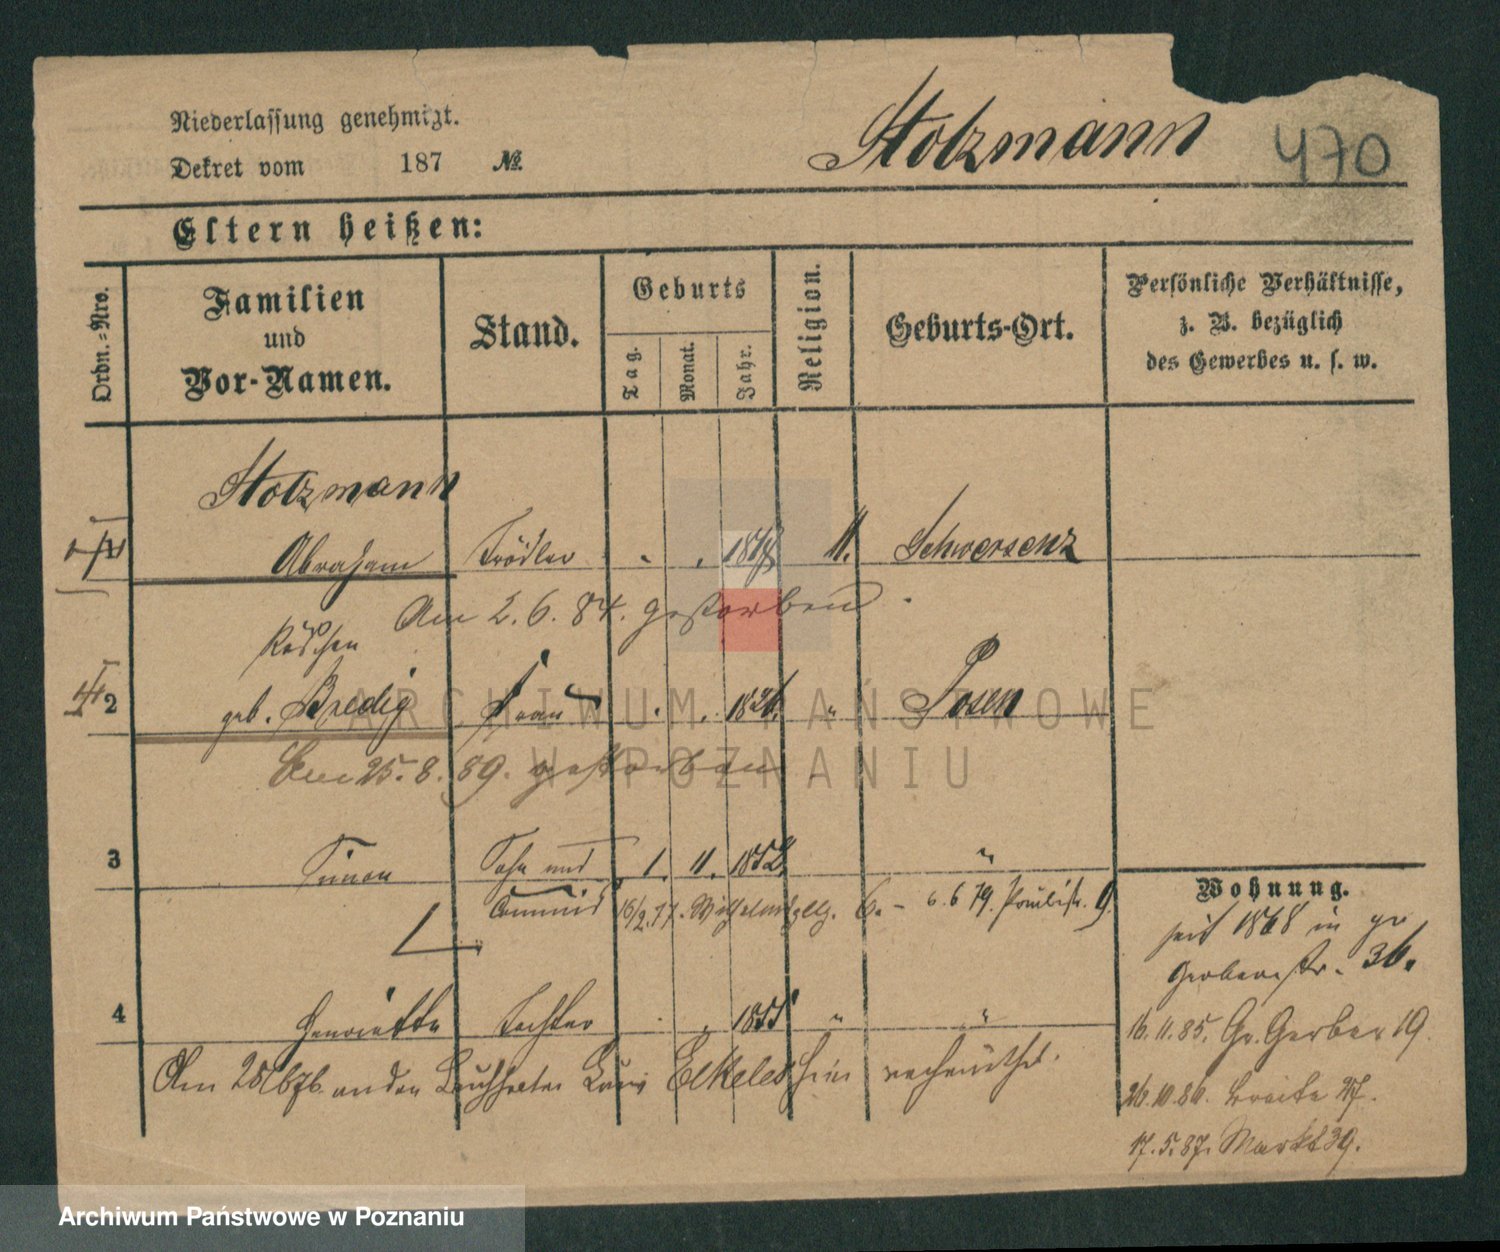 Niederlassung genehmigt.
Dekret vom 187 No.
Stolzmann 470
Eltern heißen:
Ordn.-Nro.
Familien und Vor-Namen.
Stand.
Geburts
Tag.
Monat.
Jahr.
Religion.
Geburts-Ort.
Persönliche Verhältnisse,
z. B. bezüglich
des Gewerbes u. s. w.
Stolzmann
Abraham Trödler " " M. Schwersenz
Am 2.6.84. gestorben.
Röschen
2 geb. Bredig Frau " " 1826. " Posen
Am 25.8.89. gestorben
3 Simon Sohn und 1. 11. 1852. "
Commis 16/2.77. Wilhelmspl. 6. – 6.6 79. Paulistr. 9.
4 Henriette Tochter " " 1855 " "
Am an den Buchhalter Louis Elkeles hier verheirathet.
Wohnung.
seit 1868 in gr
Gerberstr. 36.
16.11.85. Gr. Gerber 19.
26.10.86. Breite 27.
17.5.87. Markt 39.
ARCHIWUM PAŃSTWOWE
W POZNANIU
Archiwum Państwowe w Poznaniu